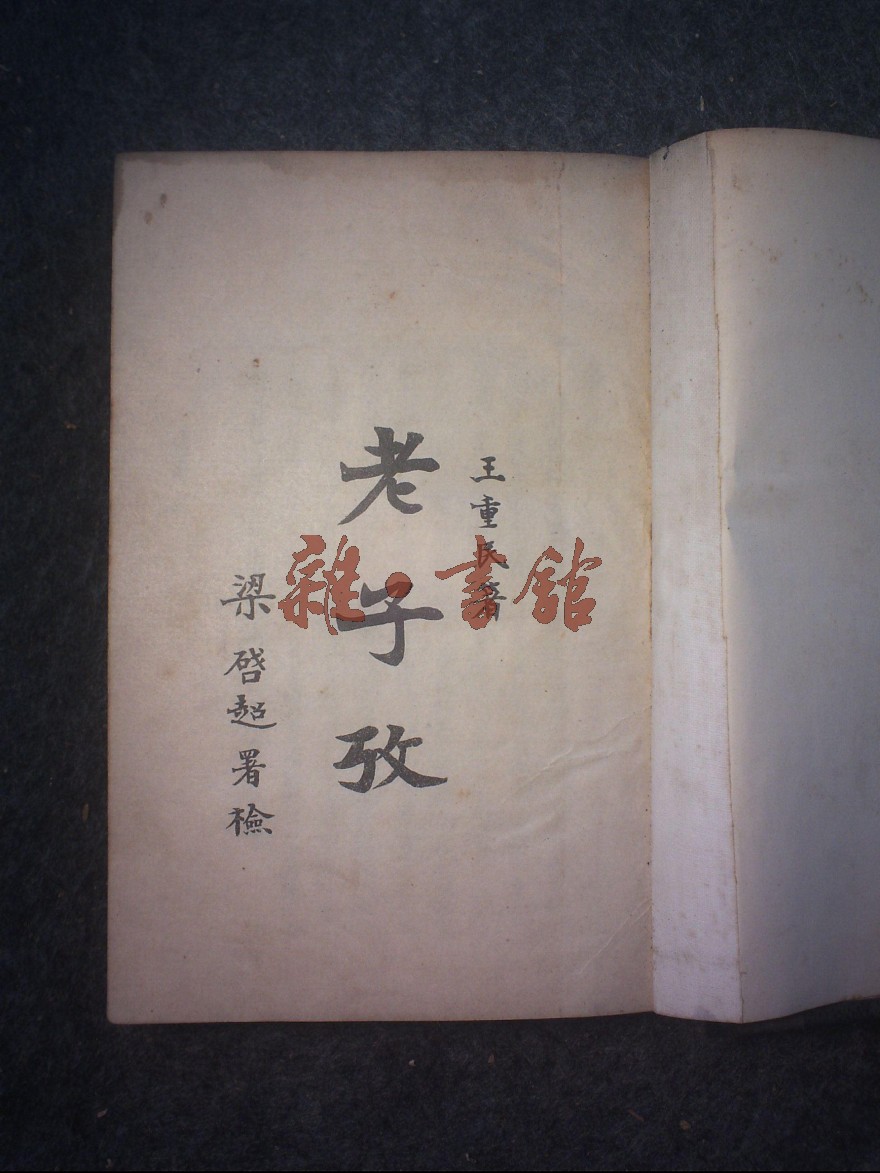 王重民著
老子攷
梁啓超署檢
雜·書館